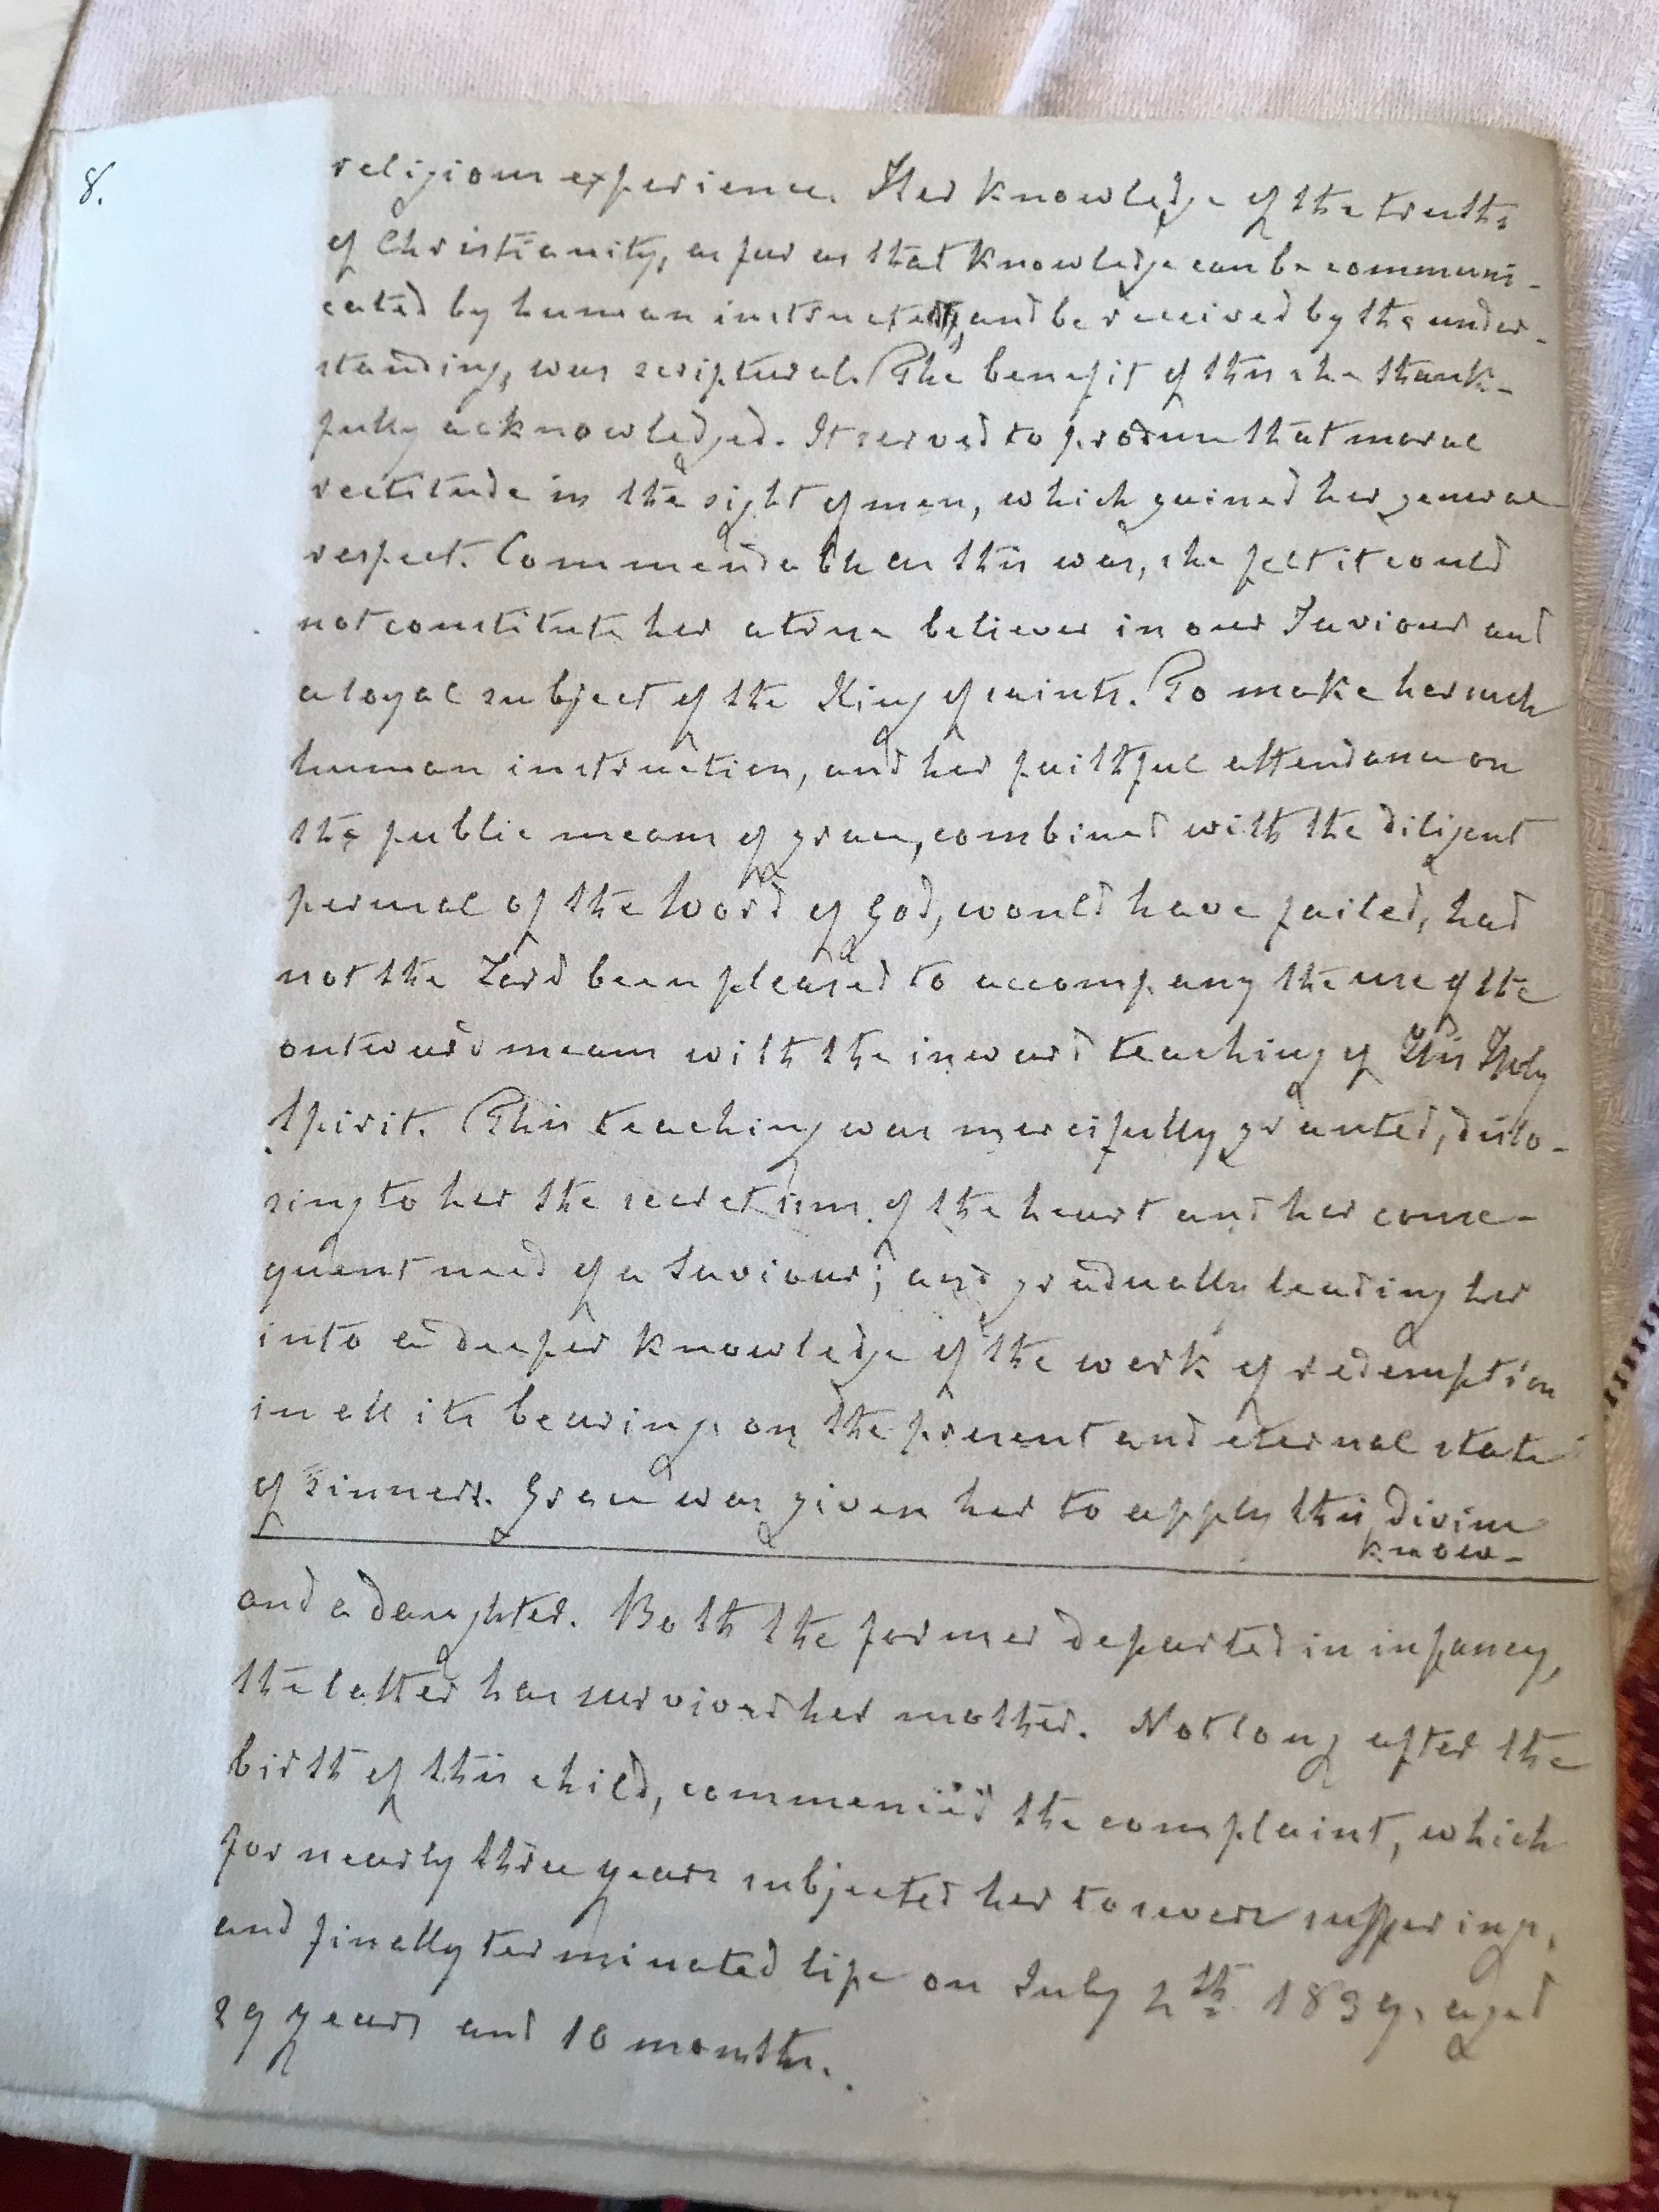 8.
religious experience. Her knowledge of the truths
of Christianity, as far as that knowledge can be communi-
cated by human instructers, and be received by the under-
standing, was scriptural. The benefit of this she thank-
fully acknowledged. It served to produce that moral
rectitude in the sight of men, which gained her general
respect. Commendable as this was, she felt it could
not constitute her a true believer in our Saviour and
a loyal subject of the King of saints. To make her such
human instruction, and her faithful attendance on
the public means of grace, combined with the diligent
perusal of the Word of God, would have failed, had
not the Lord been pleased to accompany the use of the
outward means with the inward teaching of His Holy
Spirit. This teaching was mercifully granted, disclo-
sing to her the secret sins of the heart and her conse-
quent need of a Saviour; and gradually leading her
into a deeper knowledge of the work of redemption
in all its bearings on the present and eternal state
of sinners. Grace was given her to apply this divine
know-
and a daughter. Both the former departed in infancy,
the latter has survived her mother. Not long after the
birth of this child, commenced the complaint, which
for nearly three years subjected her to severe sufferings,
and finally terminated life on July 2th 1839, aged
29 years and 10 months.